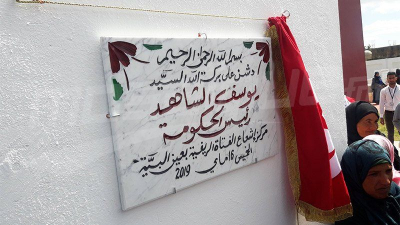 بسم الله الرحمن الرحيم
دشن على بركة الله السيد
يوسف الشاهد
رئيس الحكومة
مركز إشعاع الفتاة الريفية بعين البية
الخميس 16 ماي 2019